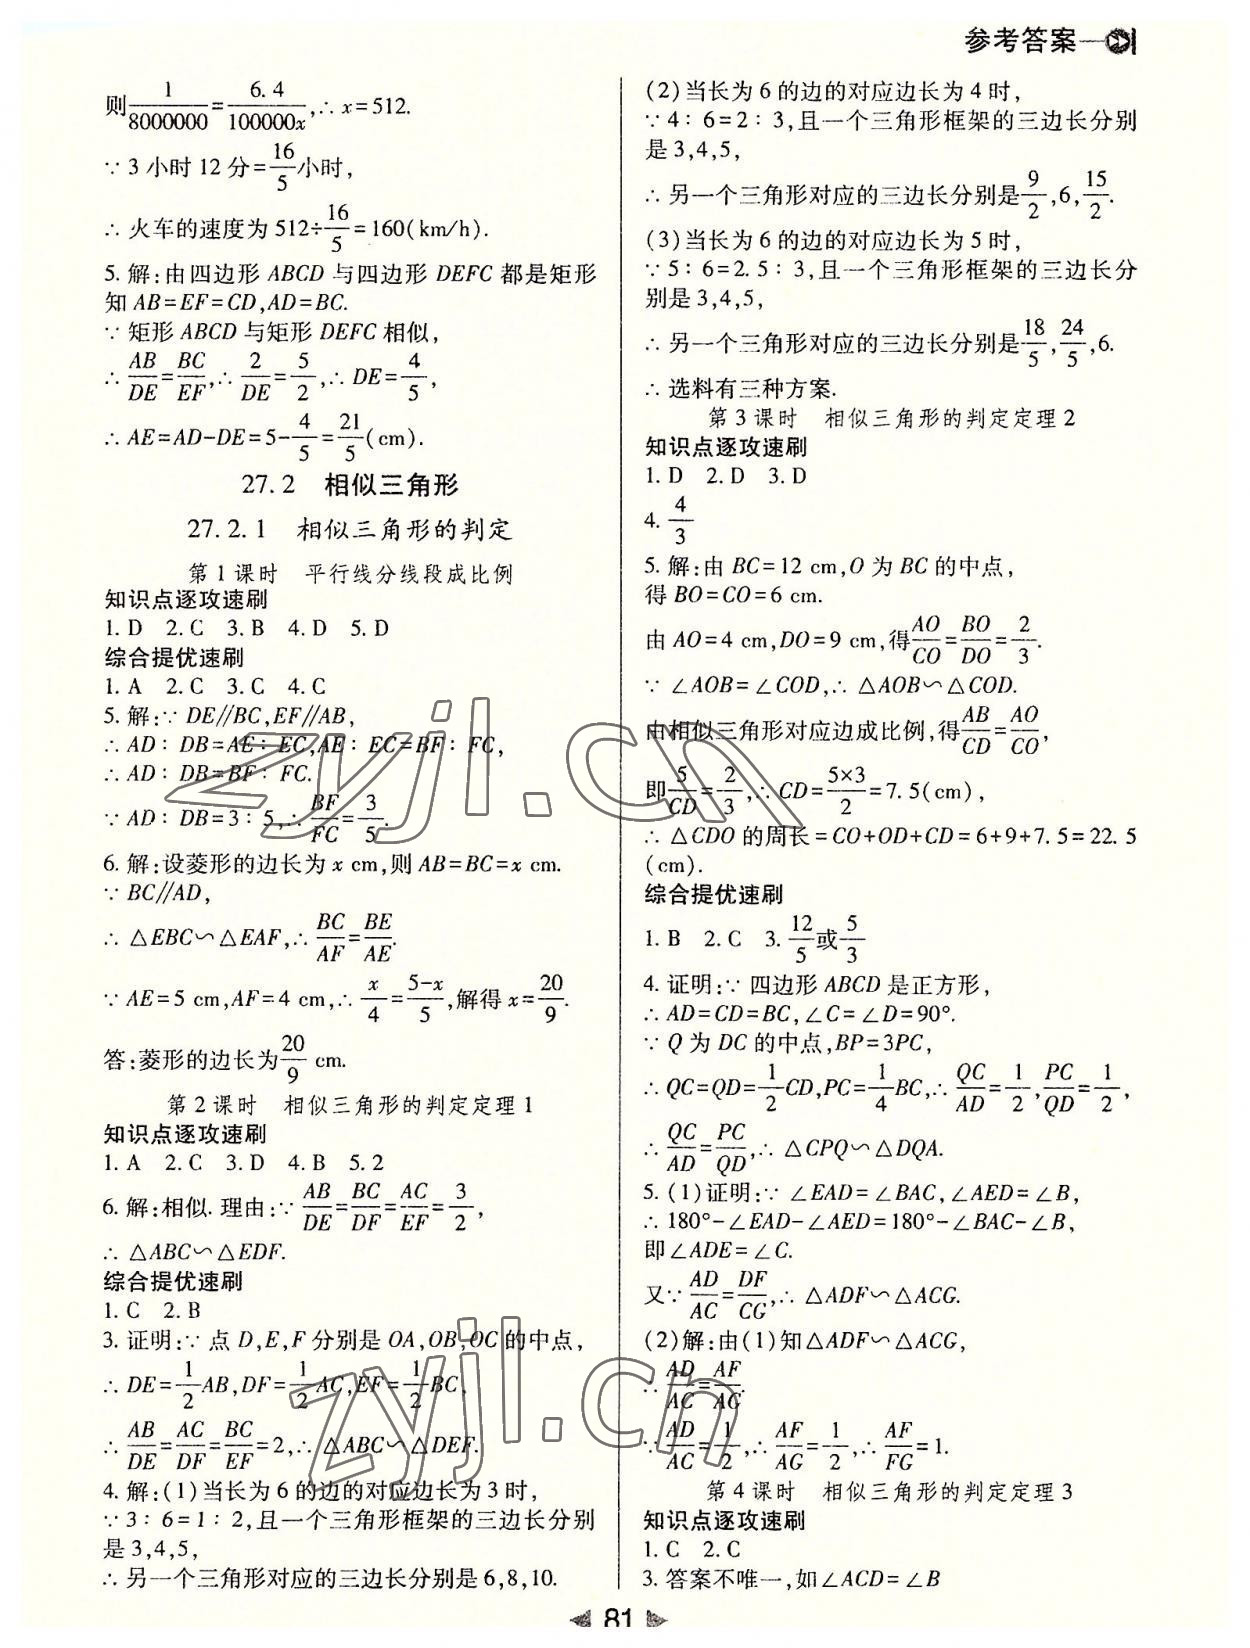 参考答案
则1/8000000=6.4/100000x,∴x=512.
∵3小时12分=16/5小时,
∴火车的速度为512÷16/5=160(km/h).
5.解:由四边形ABCD与四边形DEFC都是矩形
知AB=EF=CD,AD=BC.
∵矩形ABCD与矩形DEFC相似,
∴AB/DE=BC/EF,∴2/DE=5/2,∴DE=4/5,
∴AE=AD-DE=5-4/5=21/5(cm).
27.2 相似三角形
27.2.1 相似三角形的判定
第1课时 平行线分线段成比例
知识点逐攻速刷
1.D 2.C 3.B 4.D 5.D
综合提优速刷
1.A 2.C 3.C 4.C
5.解:∵DE//BC,EF//AB,
∴AD∶DB=AE∶EC,AE∶EC=BF∶FC,
∴AD∶DB=BF∶FC.
∵AD∶DB=3∶5,∴BF/FC=3/5.
6.解:设菱形的边长为x cm,则AB=BC=x cm.
∵BC//AD,
∴△EBC∽△EAF,∴BC/AF=BE/AE.
∵AE=5 cm,AF=4 cm,∴x/4=5-x/5,解得x=20/9.
答:菱形的边长为20/9 cm.
第2课时 相似三角形的判定定理1
知识点逐攻速刷
1.A 2.C 3.D 4.B 5.2
6.解:相似.理由:∵AB/DE=BC/DF=AC/EF=3/2,
∴△ABC∽△EDF.
综合提优速刷
1.C 2.B
3.证明:∵点D,E,F分别是OA,OB,OC的中点,
∴DE=1/2AB,DF=1/2AC,EF=1/2BC,
∴AB/DE=AC/DF=BC/EF=2,∴△ABC∽△DEF.
4.解:(1)当长为6的边的对应边长为3时,
∵3∶6=1∶2,且一个三角形框架的三边长分别
是3,4,5,
∴另一个三角形对应的三边长分别是6,8,10.
(2)当长为6的边的对应边长为4时,
∵4∶6=2∶3,且一个三角形框架的三边长分别
是3,4,5,
∴另一个三角形对应的三边长分别是9/2,6,15/2.
(3)当长为6的边的对应边长为5时,
∵5∶6=2.5∶3,且一个三角形框架的三边长分
别是3,4,5,
∴另一个三角形对应的三边长分别是18/5,24/5,6.
∴选料有三种方案.
第3课时 相似三角形的判定定理2
知识点逐攻速刷
1.D 2.D 3.D
4.4/3
5.解:由BC=12 cm,O为BC的中点,
得BO=CO=6 cm.
由AO=4 cm,DO=9 cm,得AO/CO=BO/DO=2/3.
∵∠AOB=∠COD,∴△AOB∽△COD.
由相似三角形对应边成比例,得AB/CD=AO/CO,
即5/CD=2/3,∴CD=5×3/2=7.5(cm),
∴△CDO的周长=CO+OD+CD=6+9+7.5=22.5
(cm).
综合提优速刷
1.B 2.C 3.12/5或5/3
4.证明:∵四边形ABCD是正方形,
∴AD=CD=BC,∠C=∠D=90°.
∵Q为DC的中点,BP=3PC,
∴QC=QD=1/2CD,PC=1/4BC,∴QC/AD=1/2,PC/QD=1/2,
∴QC/AD=PC/QD,∴△CPQ∽△DQA.
5.(1)证明:∵∠EAD=∠BAC,∠AED=∠B,
∴180°-∠EAD-∠AED=180°-∠BAC-∠B,
即∠ADE=∠C.
又∵AD/AC=DF/CG,∴△ADF∽△ACG.
(2)解:由(1)知△ADF∽△ACG,
∴AD/AC=AF/AG.
∵AD/AC=1/2,∴AF/AG=1/2,∴AF/FG=1.
第4课时 相似三角形的判定定理3
知识点逐攻速刷
1.C 2.C
3.答案不唯一,如∠ACD=∠B
81
zyjl.cn
zyjl.cn